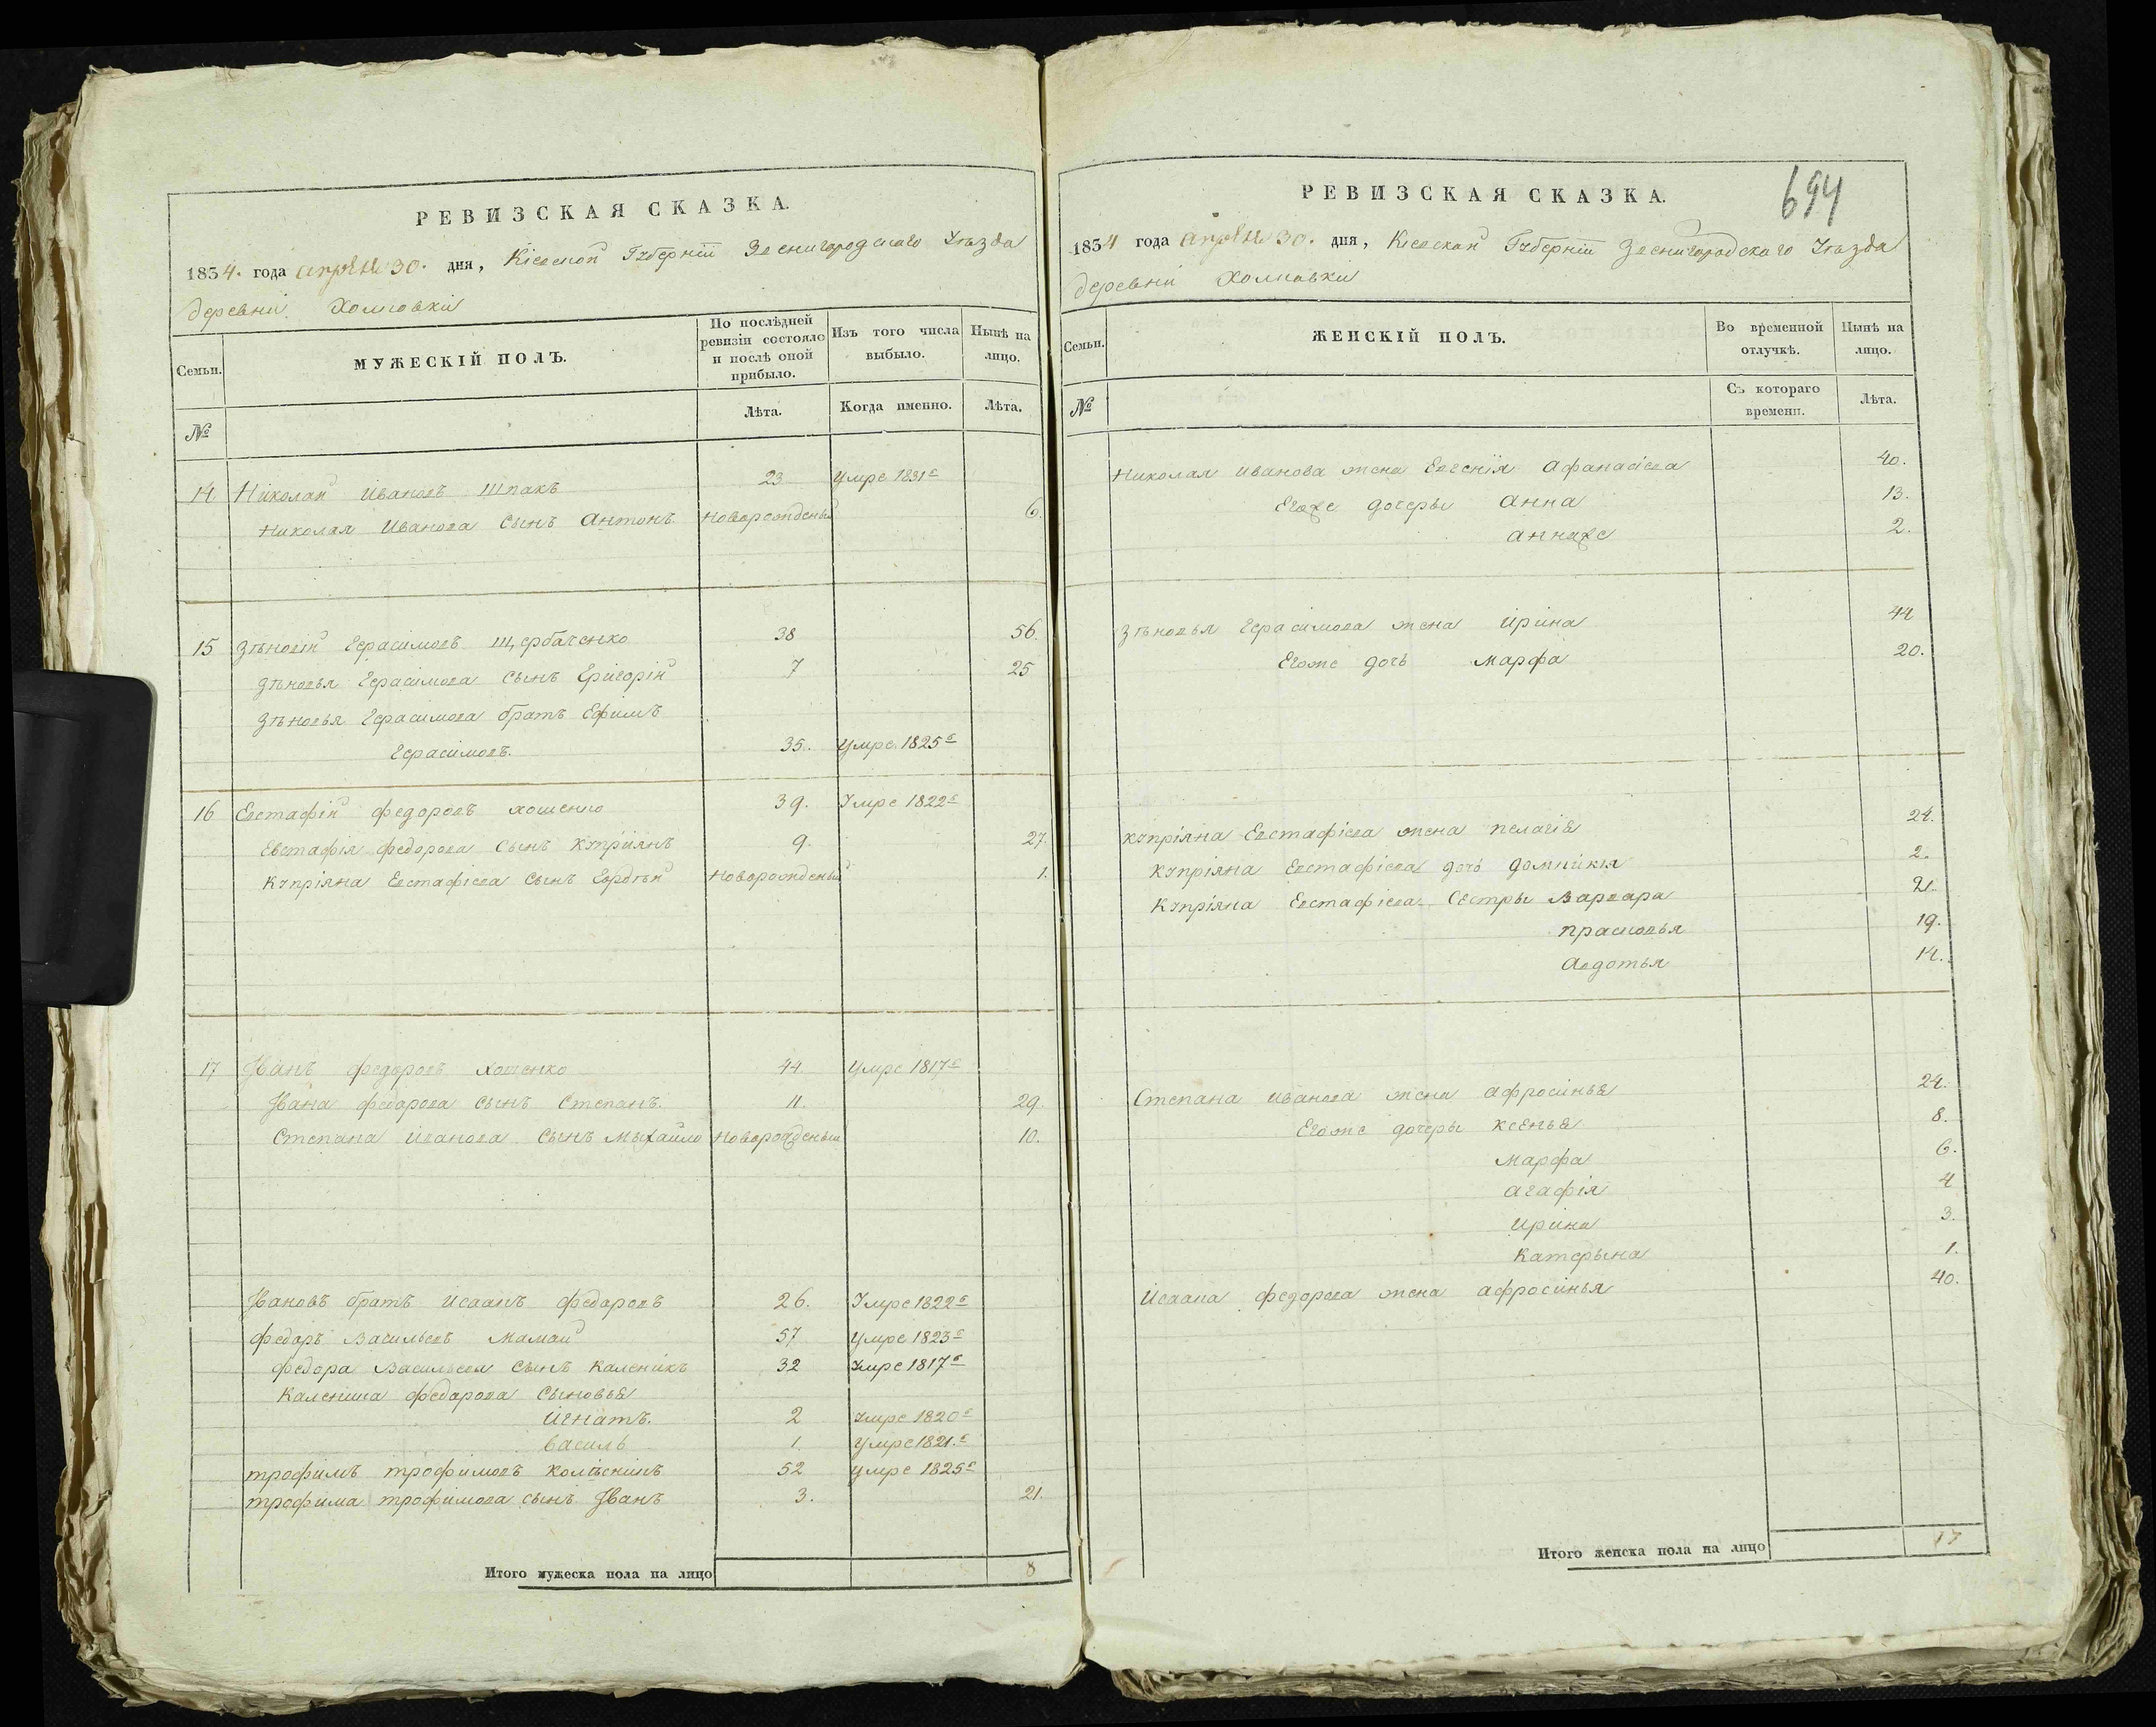 РЕВИЗСКАЯ СКАЗКА.
1834. года апрѣля 30. дня, Кіевской Губерніи Звенигородскаго Уѣзда
деревни Холповки
Семьи.
МУЖЕСКІЙ ПОЛЪ.
По послѣдней ревизіи состояло и послѣ оной прибыло.
Изъ того числа выбыло.
Нынѣ на лицо.
№
Лѣта.
Когда именно.
Лѣта.
14 Николай Ивановъ Шпакъ 23 умре 1831г
Николая Иванова сынъ Антонъ новорожденый 6.
15 Зѣновій Герасимовъ Щербаченко 38 56.
Зѣновья Герасимова сынъ Григорій 7 25
Зѣновья Герасимова братъ Ефимъ
Герасимовъ. 35. умре 1825г
16 Евстафій федоровъ хошенко 39. Умре 1822г
Евстафія федорова сынъ Купріянъ 9. 27.
Купріяна Евстафіева сынъ Гордѣй новорожденый 1.
17 Иванъ федоровъ хошенко 44 умре 1817г
Ивана федорова сынъ Степанъ. 11. 29.
Степана Иванова сынъ Михайло новорожденый 10.
Ивановъ братъ Исаакъ федоровъ 26. Умре 1822г
федоръ Васильевъ Мамай 57 умре 1823г
федора Васильева сынъ Каленикъ 32 Умре 1817г
Каленика федорова сыновья
Игнатъ. 2 Умре 1820г
василь 1. умре 1821.г
трофимъ трофимовъ Колѣсникъ 52 умре 1825г
трофима трофимова сынъ Иванъ 3. 21.
Итого мужеска пола на лицо 8
694
РЕВИЗСКАЯ СКАЗКА.
1834 года апрѣля 30. дня, Кіевской Губерніи Звенигородскаго Уѣзда
деревни Холповки
Семьи.
ЖЕНСКІЙ ПОЛЪ.
Во временной отлучкѣ.
Нынѣ на лицо.
№
Съ котораго времени.
Лѣта.
Николая Иванова жена Евгенія Афанасіева 40.
Егоже дочеры Анна 13.
Аннаже 2.
Зѣновья Герасимова жена Ирина 44
Егоже дочь Марфа 20.
Купріяна Евстафіева жена пелагія 24.
Купріяна Евстафіева дочь домникія 2.
Купріяна Евстафіева Сестры Варвара 21.
прасковья 19.
Авдотья 14.
Степана Иванова жена афросинья 24.
Егоже дочеры ксенья 8.
Марфа 6.
агафія 4
Ирина 3.
Катерына 1.
Исаака федорова жена афросинья 40.
Итого женска пола на лицо 17